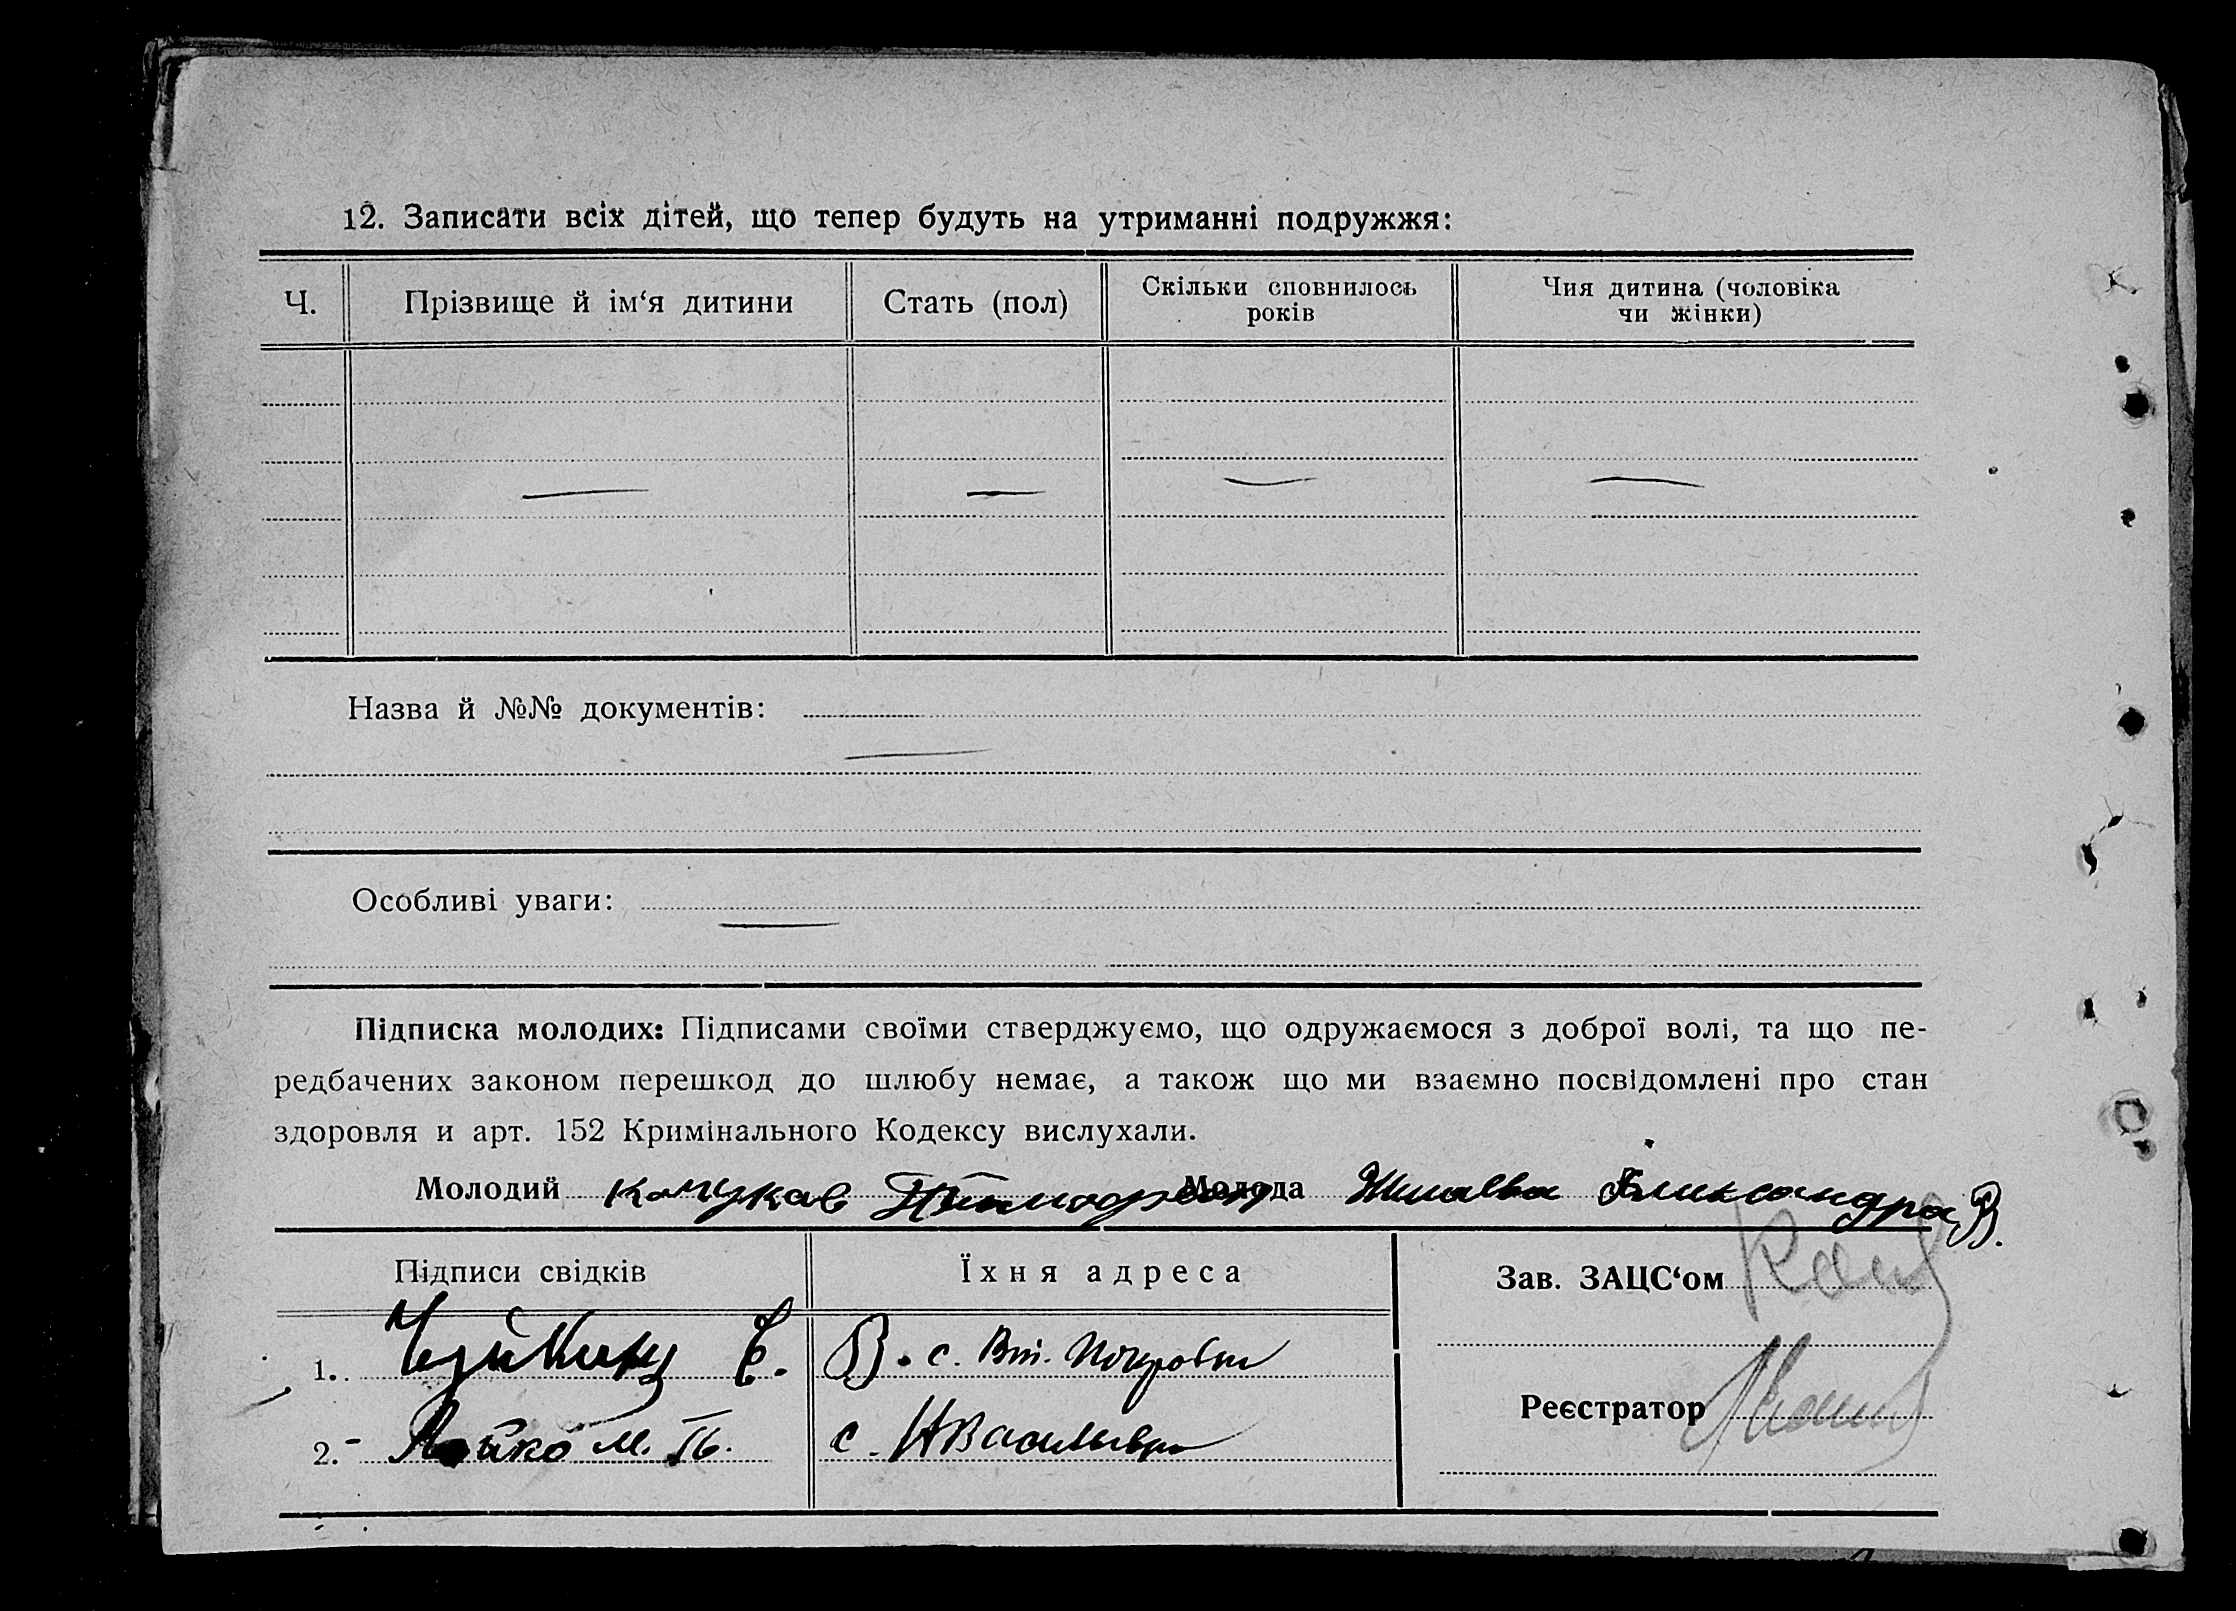 12. Записати всіх дітей, що тепер будуть на утриманні подружжя:
Ч. Прізвище й ім‘я дитини Стать (пол) Скільки сповнилось років Чия дитина (чоловіка чи жінки)
Назва й №№ документів:
Особливі уваги:
Підписка молодих: Підписами своїми стверджуємо, що одружаємося з доброї волі, та що пе-
редбачених законом перешкод до шлюбу немає, а також що ми взаємно посвідомлені про стан
здоровля и арт. 152 Кримінального Кодексу вислухали.
Молодий Молода Александра В.
Підписи свідків Їхня адреса Зав. ЗАЦС‘ом
1. Е. В. с. Вт. Покровка
2. - М. с. Н Васильевка
Реєстратор